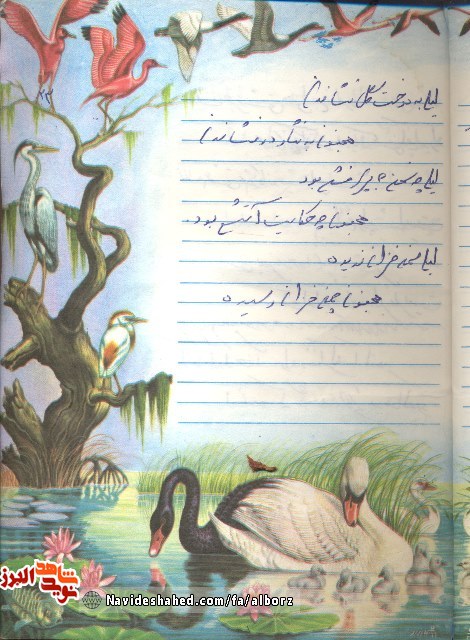 لیلی به درخت گل نشاندن
مجنون به نثار در فشاندن
لیلی چه سخن پری فشی بود
مجنون چه حکایت آتشی بود
لیلی سمن خزان ندیده
مجنون چمن خزان رسیده
نوید شاهد البرز
Navideshahed.com/fa/alborz